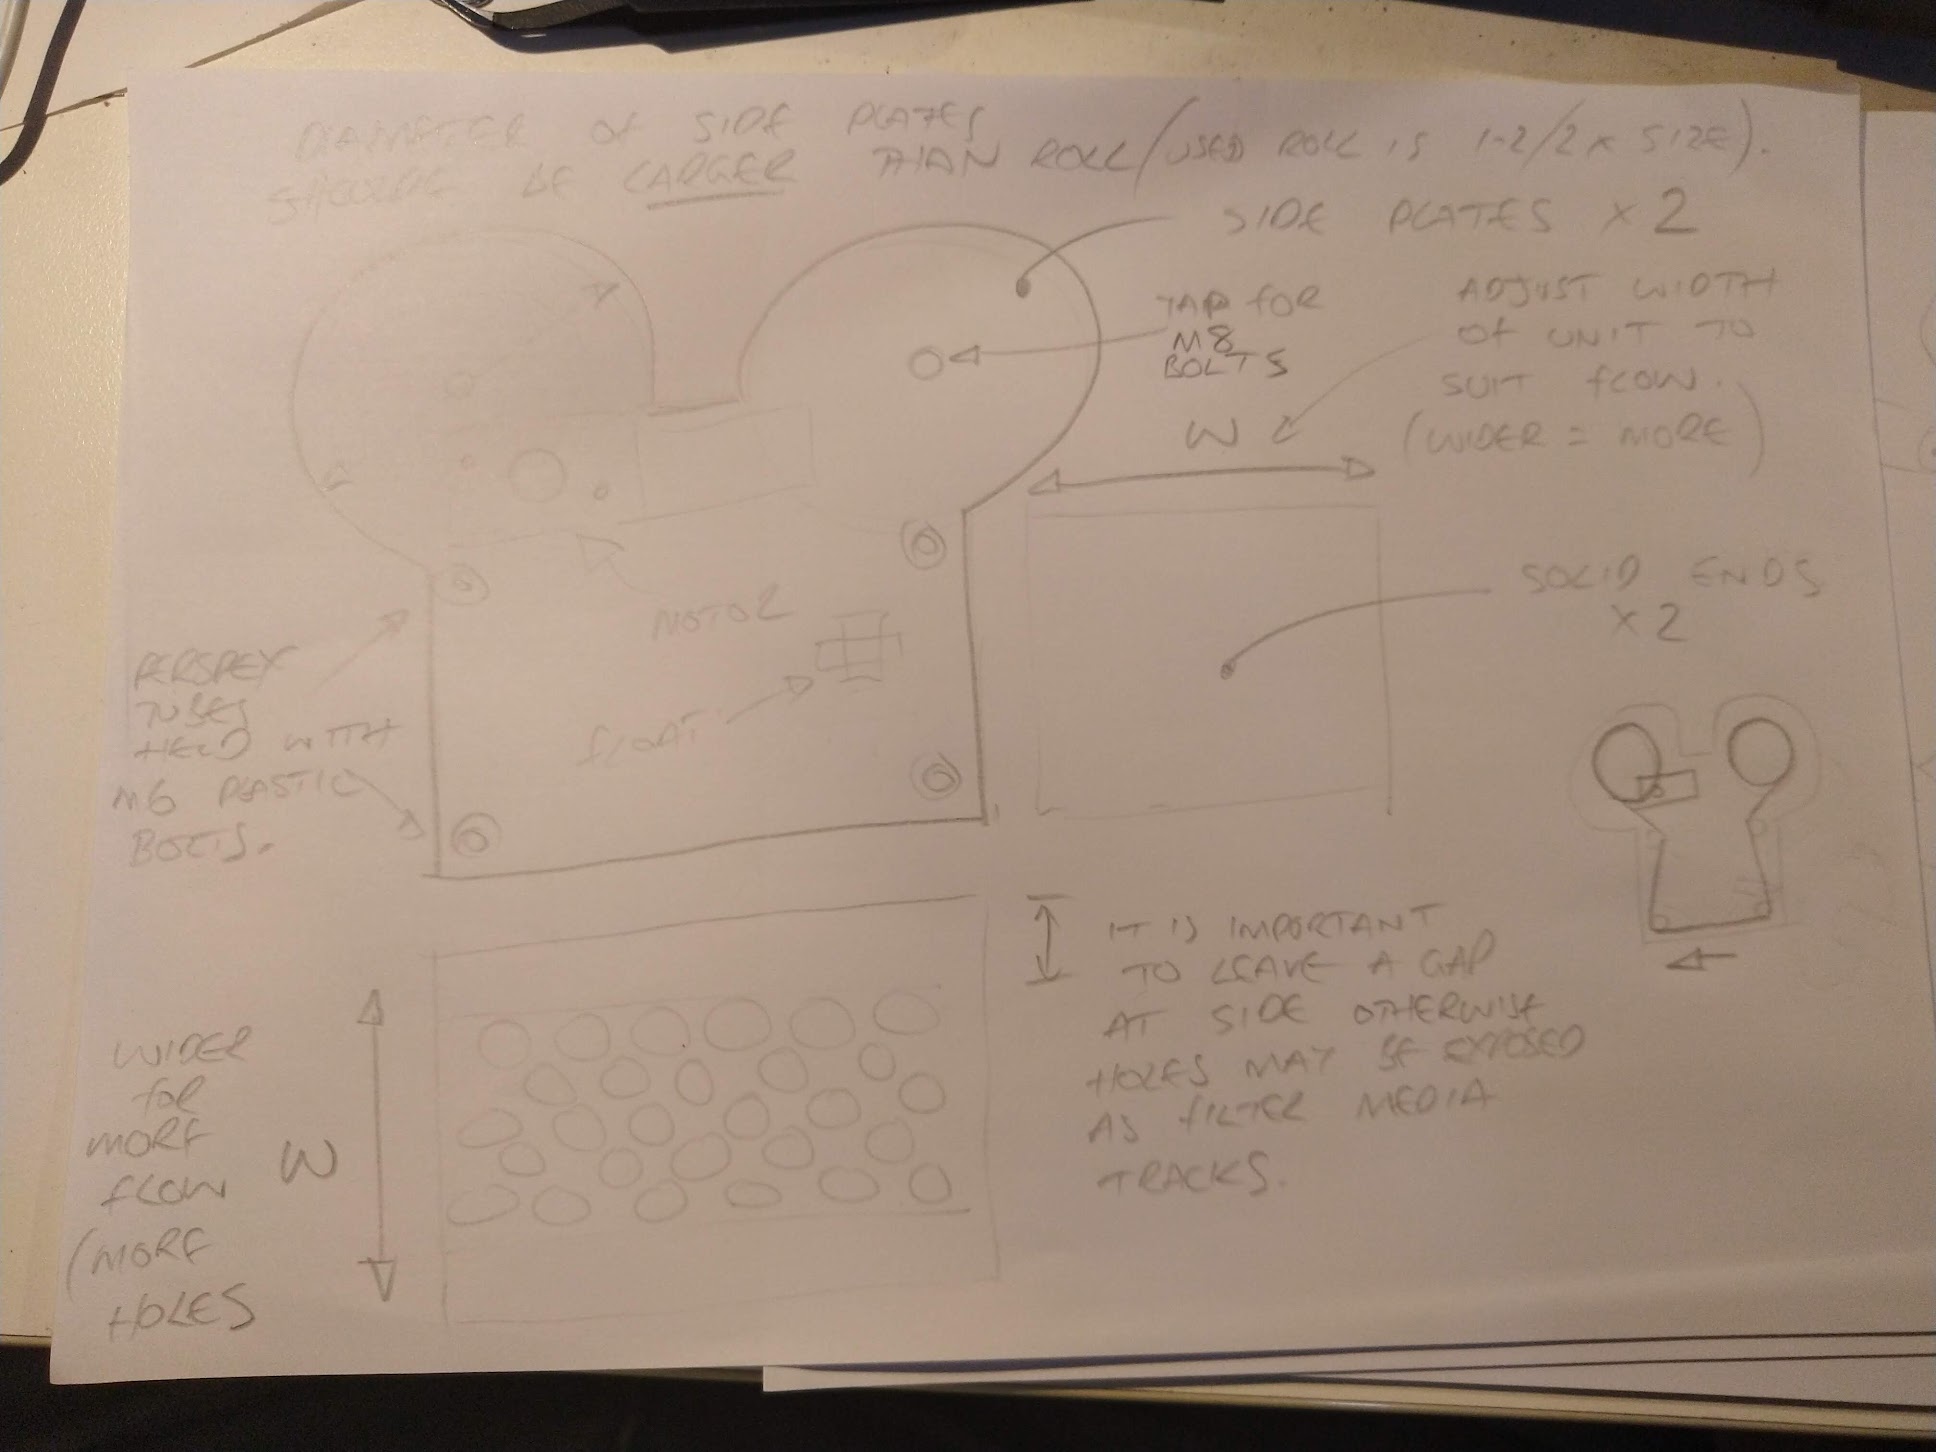 DIAMETER OF SIDE PLATES
SHOULD BE LARGER THAN ROLL (USED ROLL IS 1-2/2x SIZE).
SIDE PLATES x 2
TAP FOR
M8
BOLTS
ADJUST WIDTH
OF UNIT TO
SUIT FLOW.
(WIDER = MORE)
W
SOLID ENDS
x 2
MOTOR
FLOAT
PERSPEX
TUBES
HELD WITH
M6 PLASTIC
BOLTS.
IT IS IMPORTANT
TO LEAVE A GAP
AT SIDE OTHERWISE
HOLES MAY BE EXPOSED
AS FILTER MEDIA
TRACKS.
WIDER
FOR
MORE
FLOW
(MORE
HOLES
W